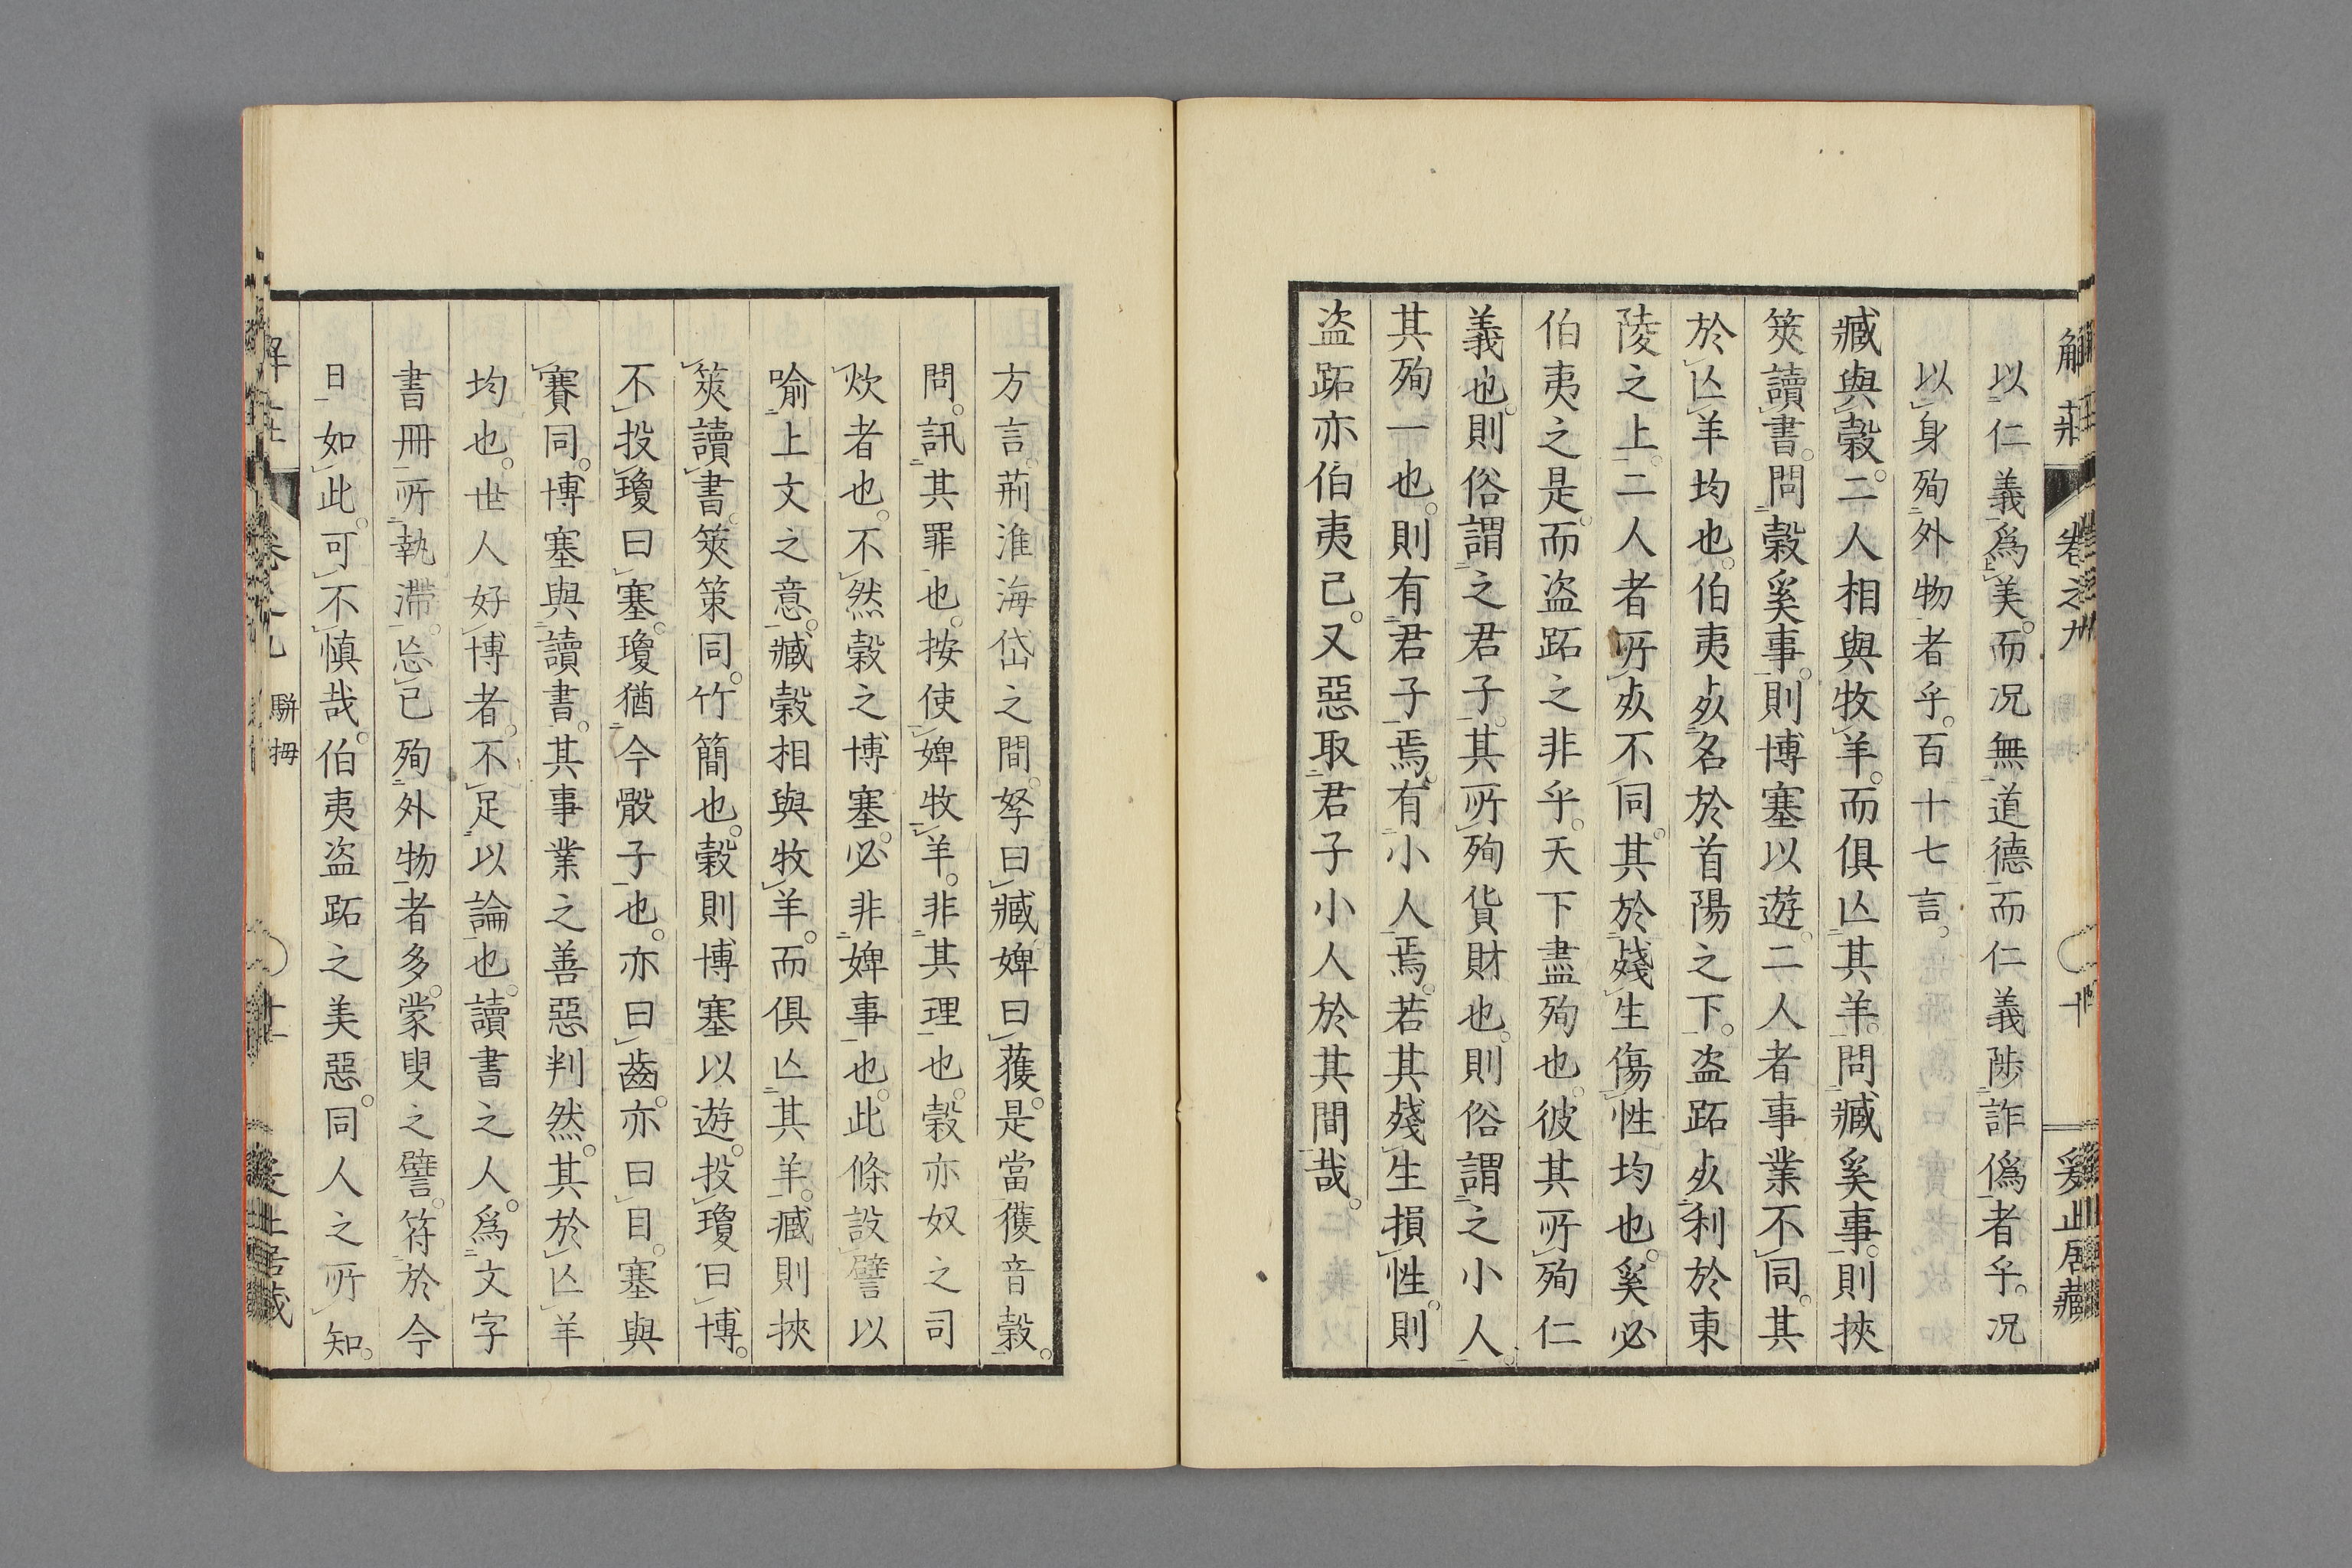 解莊 卷之九 十 爰止居藏
以仁義爲美。而况無道德而仁義陟詐僞者乎。况
以身殉外物者乎。百十七言。
臧與穀。二人相與牧羊。而俱亾其羊。問臧奚事。則挾
筴讀書。問穀奚事。則博塞以遊。二人者事業不同。其
於亾羊均也。伯夷死名於首陽之下。盗跖死利於東
陵之上。二人者所死不同。其於殘生傷性均也。奚必
伯夷之是。而盗跖之非乎。天下盡殉也。彼其所殉仁
義也。則俗謂之君子。其所殉貨財也。則俗謂之小人。
其殉一也。則有君子焉。有小人焉。若其殘生損性。則
盗跖亦伯夷已。又惡取君子小人於其間哉。
方言。荊淮海岱之間。孥曰臧婢曰蒦。是當獲音穀。
問。訊其罪也。按使婢牧羊。非其理也。穀亦奴之司
炊者也。不然穀之博塞。必非婢事也。此條設譬以
喻上文之意。臧穀相與牧羊。而俱亾其羊。臧則挾
筴讀書。筴策同。竹簡也。穀則博塞以遊。投瓊曰博。
不投瓊曰塞。瓊猶今骰子也。亦曰齒。亦曰目。塞與
賽同。博塞與讀書。其事業之善惡判然。其於亾羊
均也。世人好博者。不足以論也。讀書之人。爲文字
書冊所執滞。忘已殉外物者多。蒙叟之譬。符於今
日如此。可不慎哉。伯夷盗跖之美惡。同人之所知。
駢拇